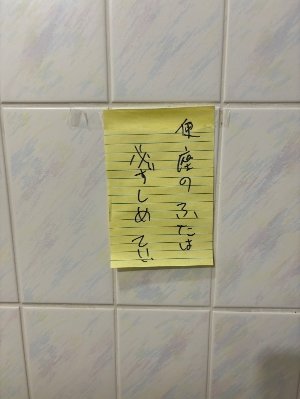 便座のふたは
必ずしめてい